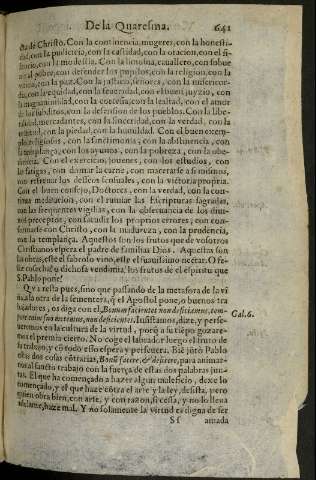 De la Quaresma. 641
de Christo. Con la continencia mugeres, con la honesti-
dad, con la pudicicia, con la castidad, con la oracion, con el si-
lencio, con la modestia. Con la limosna, cauallero, con sobue
al pobre, con defender los pupilos, con la religion, con la
con la paz. Con la justicia, señores, con la misericor-
dia, con la equidad, con la seueridad, con el buen juyzio, con
la magnanimidad, con la cortesia, con la lealtad, con el amor
de los subditos, con la defension de los pueblos. Con la libe-
ralidad, mercadantes, con la sinceridad, con la verdad, con la
con la piedad, con la humildad. Con el buen exem-
plo, religiosos, con la sanctimonia, con la abstinencia, con
la templança, con los ayunos, con la pobreza, con la obe-
diencia. Con el exercicio, jouenes, con los estudios, con
la fatiga, con domar la carne, con macerarse a si mismos,
con refrenar los desseos sensuales, con la victoria propria.
Con el buen consejo, Doctores, con la verdad, con la con-
tinua meditacion, con el rumiar las Escripturas sagradas,
con las frequentes vigilias, con la obseruancia de los diui-
nos preceptos, con sacudir los proprios errores, con con-
formarse con Christo, con la madureza, con la prudencia,
con la templança. Aquestos son los frutos que de vosotros
Christianos espera el padre de familias Dios. Aquestas son
la obras, este el sabroso vino, este el suauissimo nectar. O fe-
liz cosecha! o dichosa vendimia! los frutos de el espiritu que
S. Pablo pone!
Que resta pues, sino que passando de la metafora de la vi
ña, a la otra de la sementera, q̃ el Apostol pone, o buenos tra
bajadores, os diga con el, Bonum facientes non deficiamus, tem- Gal. 6.
pore enim suo metemus, non deficientes. Insistamos, dize, y perse-
ueremos en la cultura de la virtud, porq̃ a su tiẽpo gozare-
mos el premio cierto. No coge el labrador luego el fruto de
su trabajo, y cõ todo esso espera y perseuera. Biẽ jũtò Pablo
estas dos cosas cõtrarias, Bonũ facere, & deficere, para animar-
nos al sancto trabajo con la fuerça de estas dos palabras jun-
tas. El que ha començado a hazer algun maleficio, dexe lo
començado, y el que haze cõtra el arte y la ley, desista, pero
quien obra bien, con arte, y con razon, si cessa, y no lo lleua
adelante, haze mal. Y no solamente la virtud es digna de ser
Sf amada